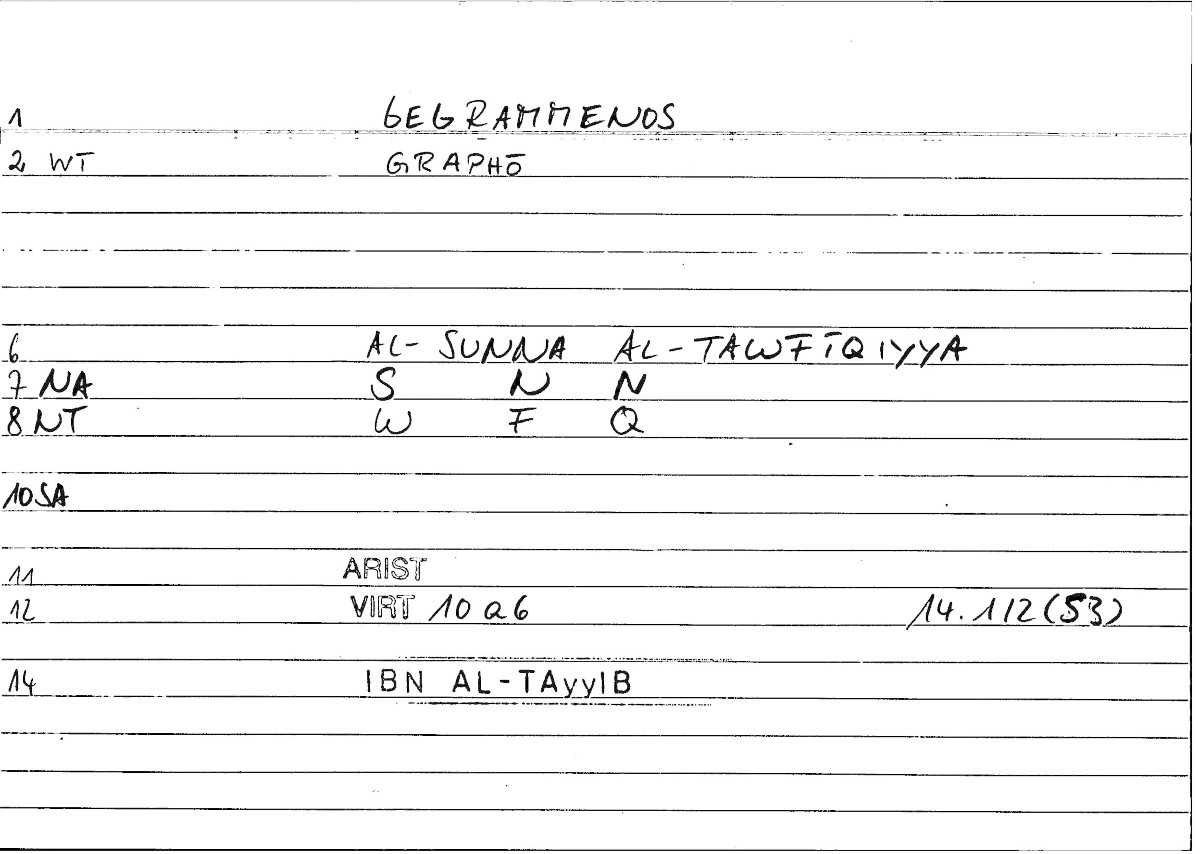 1 GEGRAMMENOS
2 WT GRAPHŌ
6 AL-SUNNA AL-TAWFĪQIYYA
7 NA S N N
8 NT W F Q
10 SA
11 ARIST
12 VIRT 10 a6 14.1/2(53)
14 IBN AL-TAyyIB